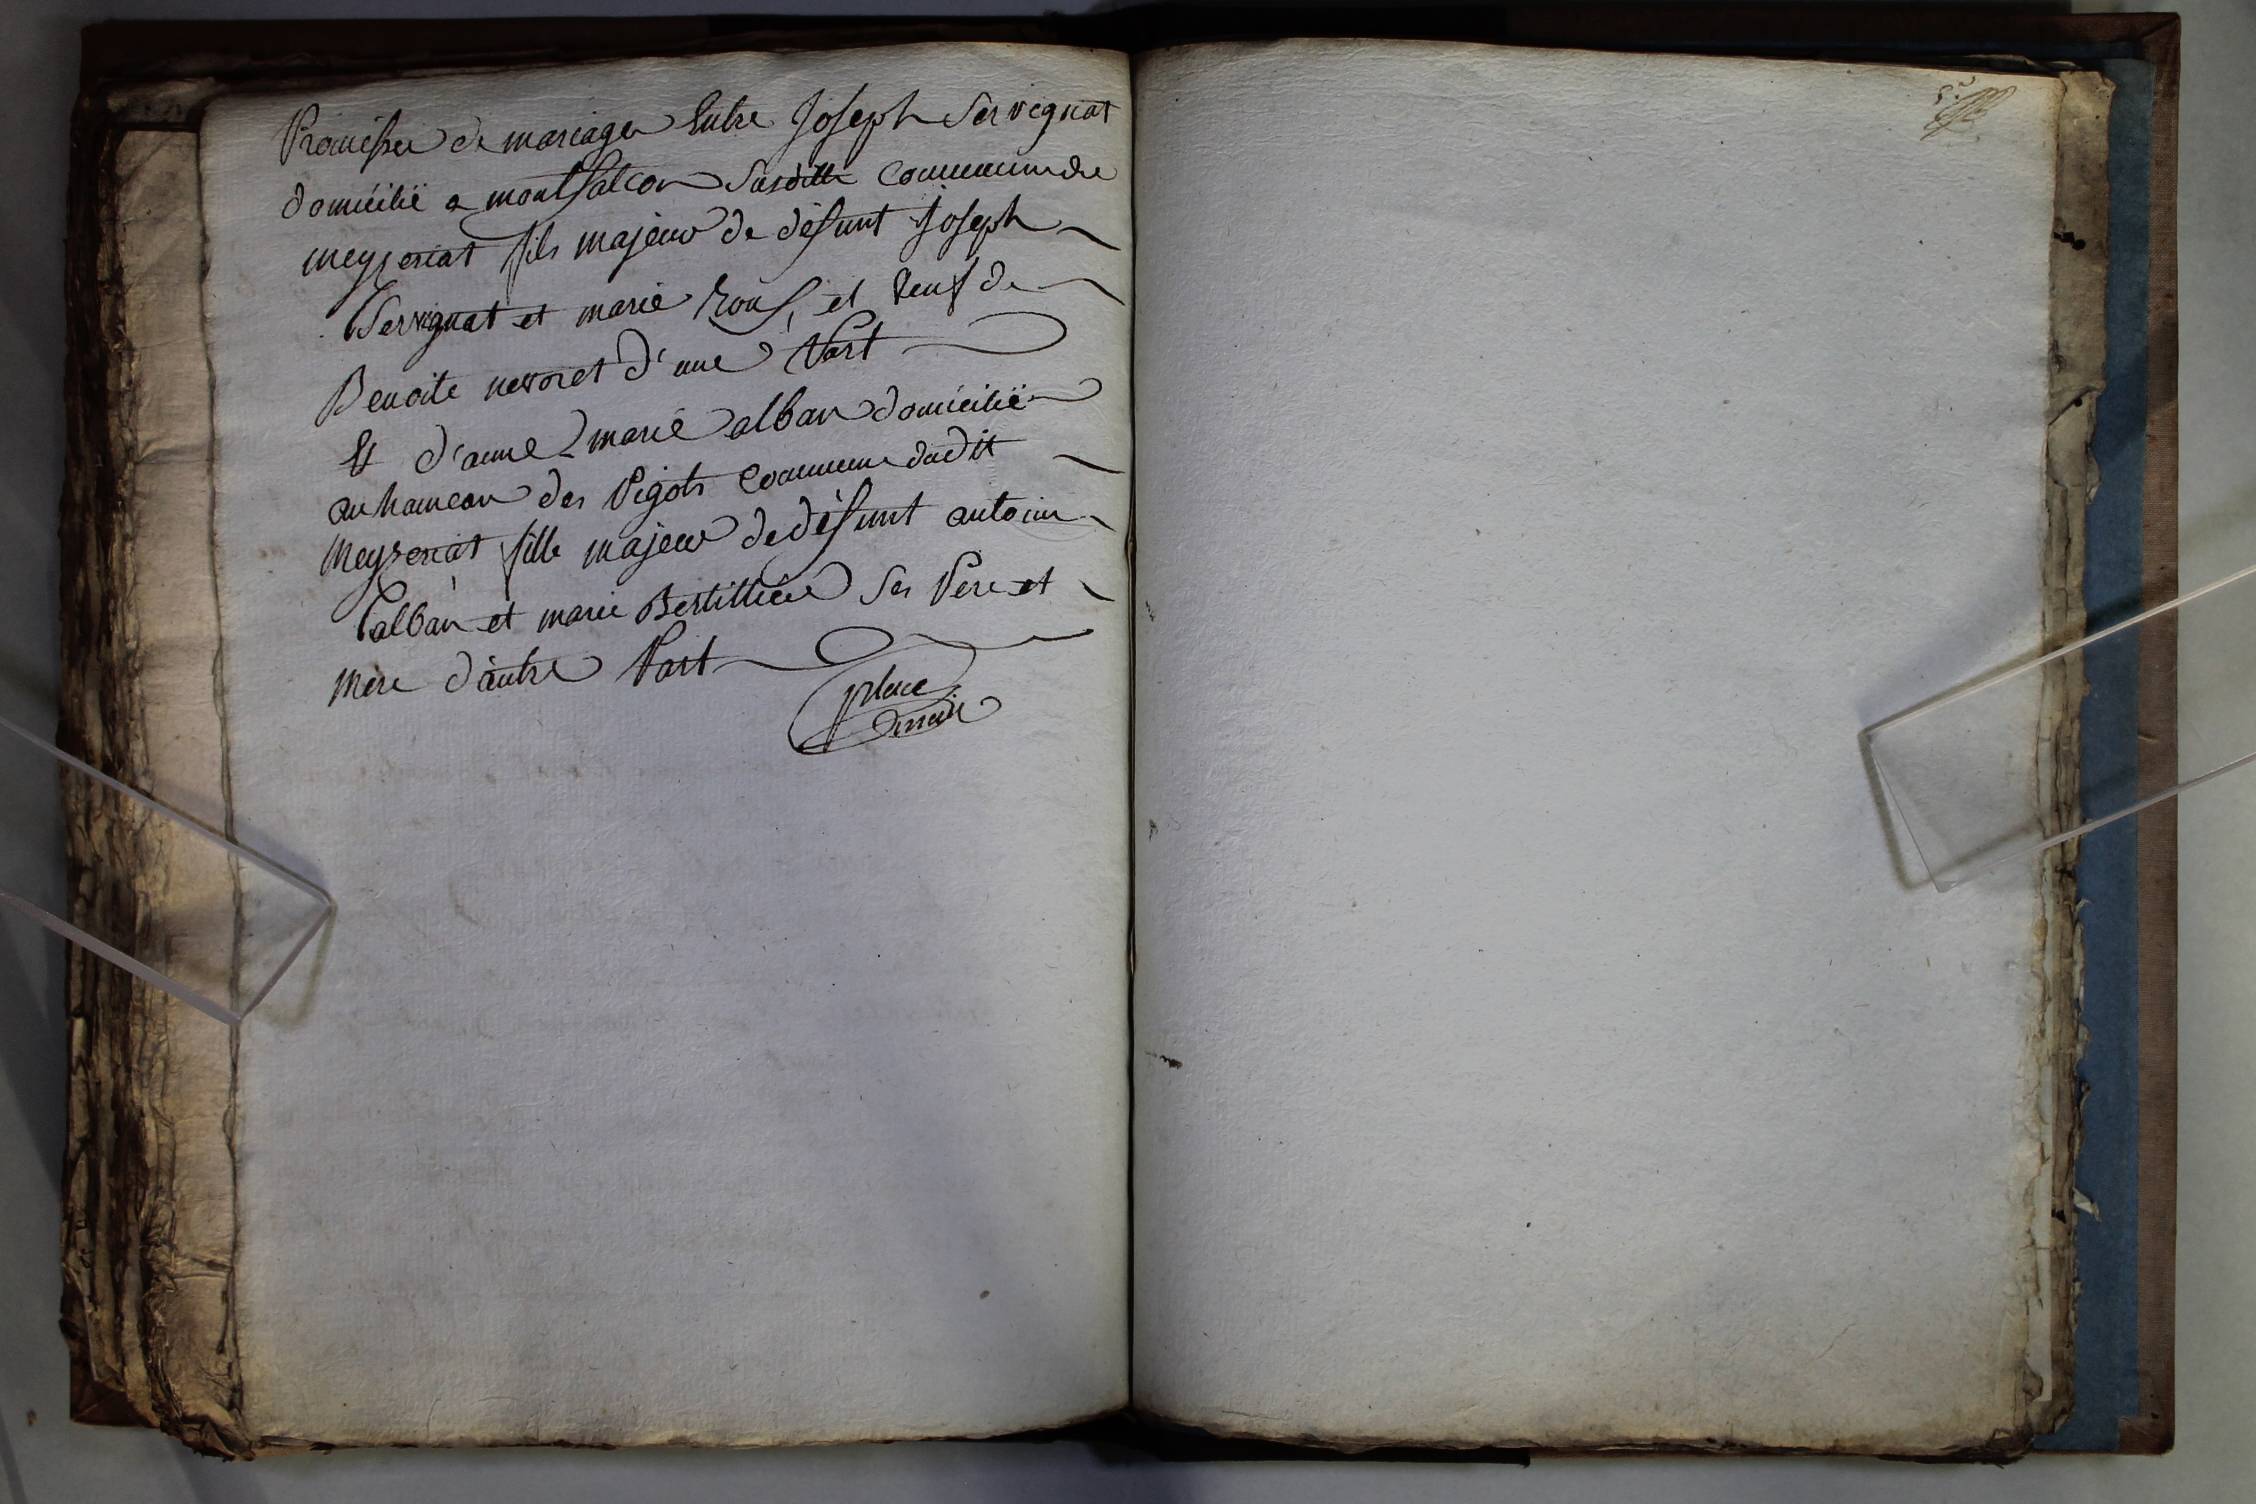 Promesse de mariage Entre Joseph Servignat
domicilié a montfalcon susditte Commune de
meyzeriat fils majeur de défunt Joseph
Servignat et marie Roux, et veuf de
Benoite nevoret d'une Part
Et d'anne marie alban domicilié
au hameau des Pigots Commune dudit
Meyzeriat fille majeur de défunt antoine
alban et marie Bertillier Ses Père et
Mère d'autre Part
place
maire